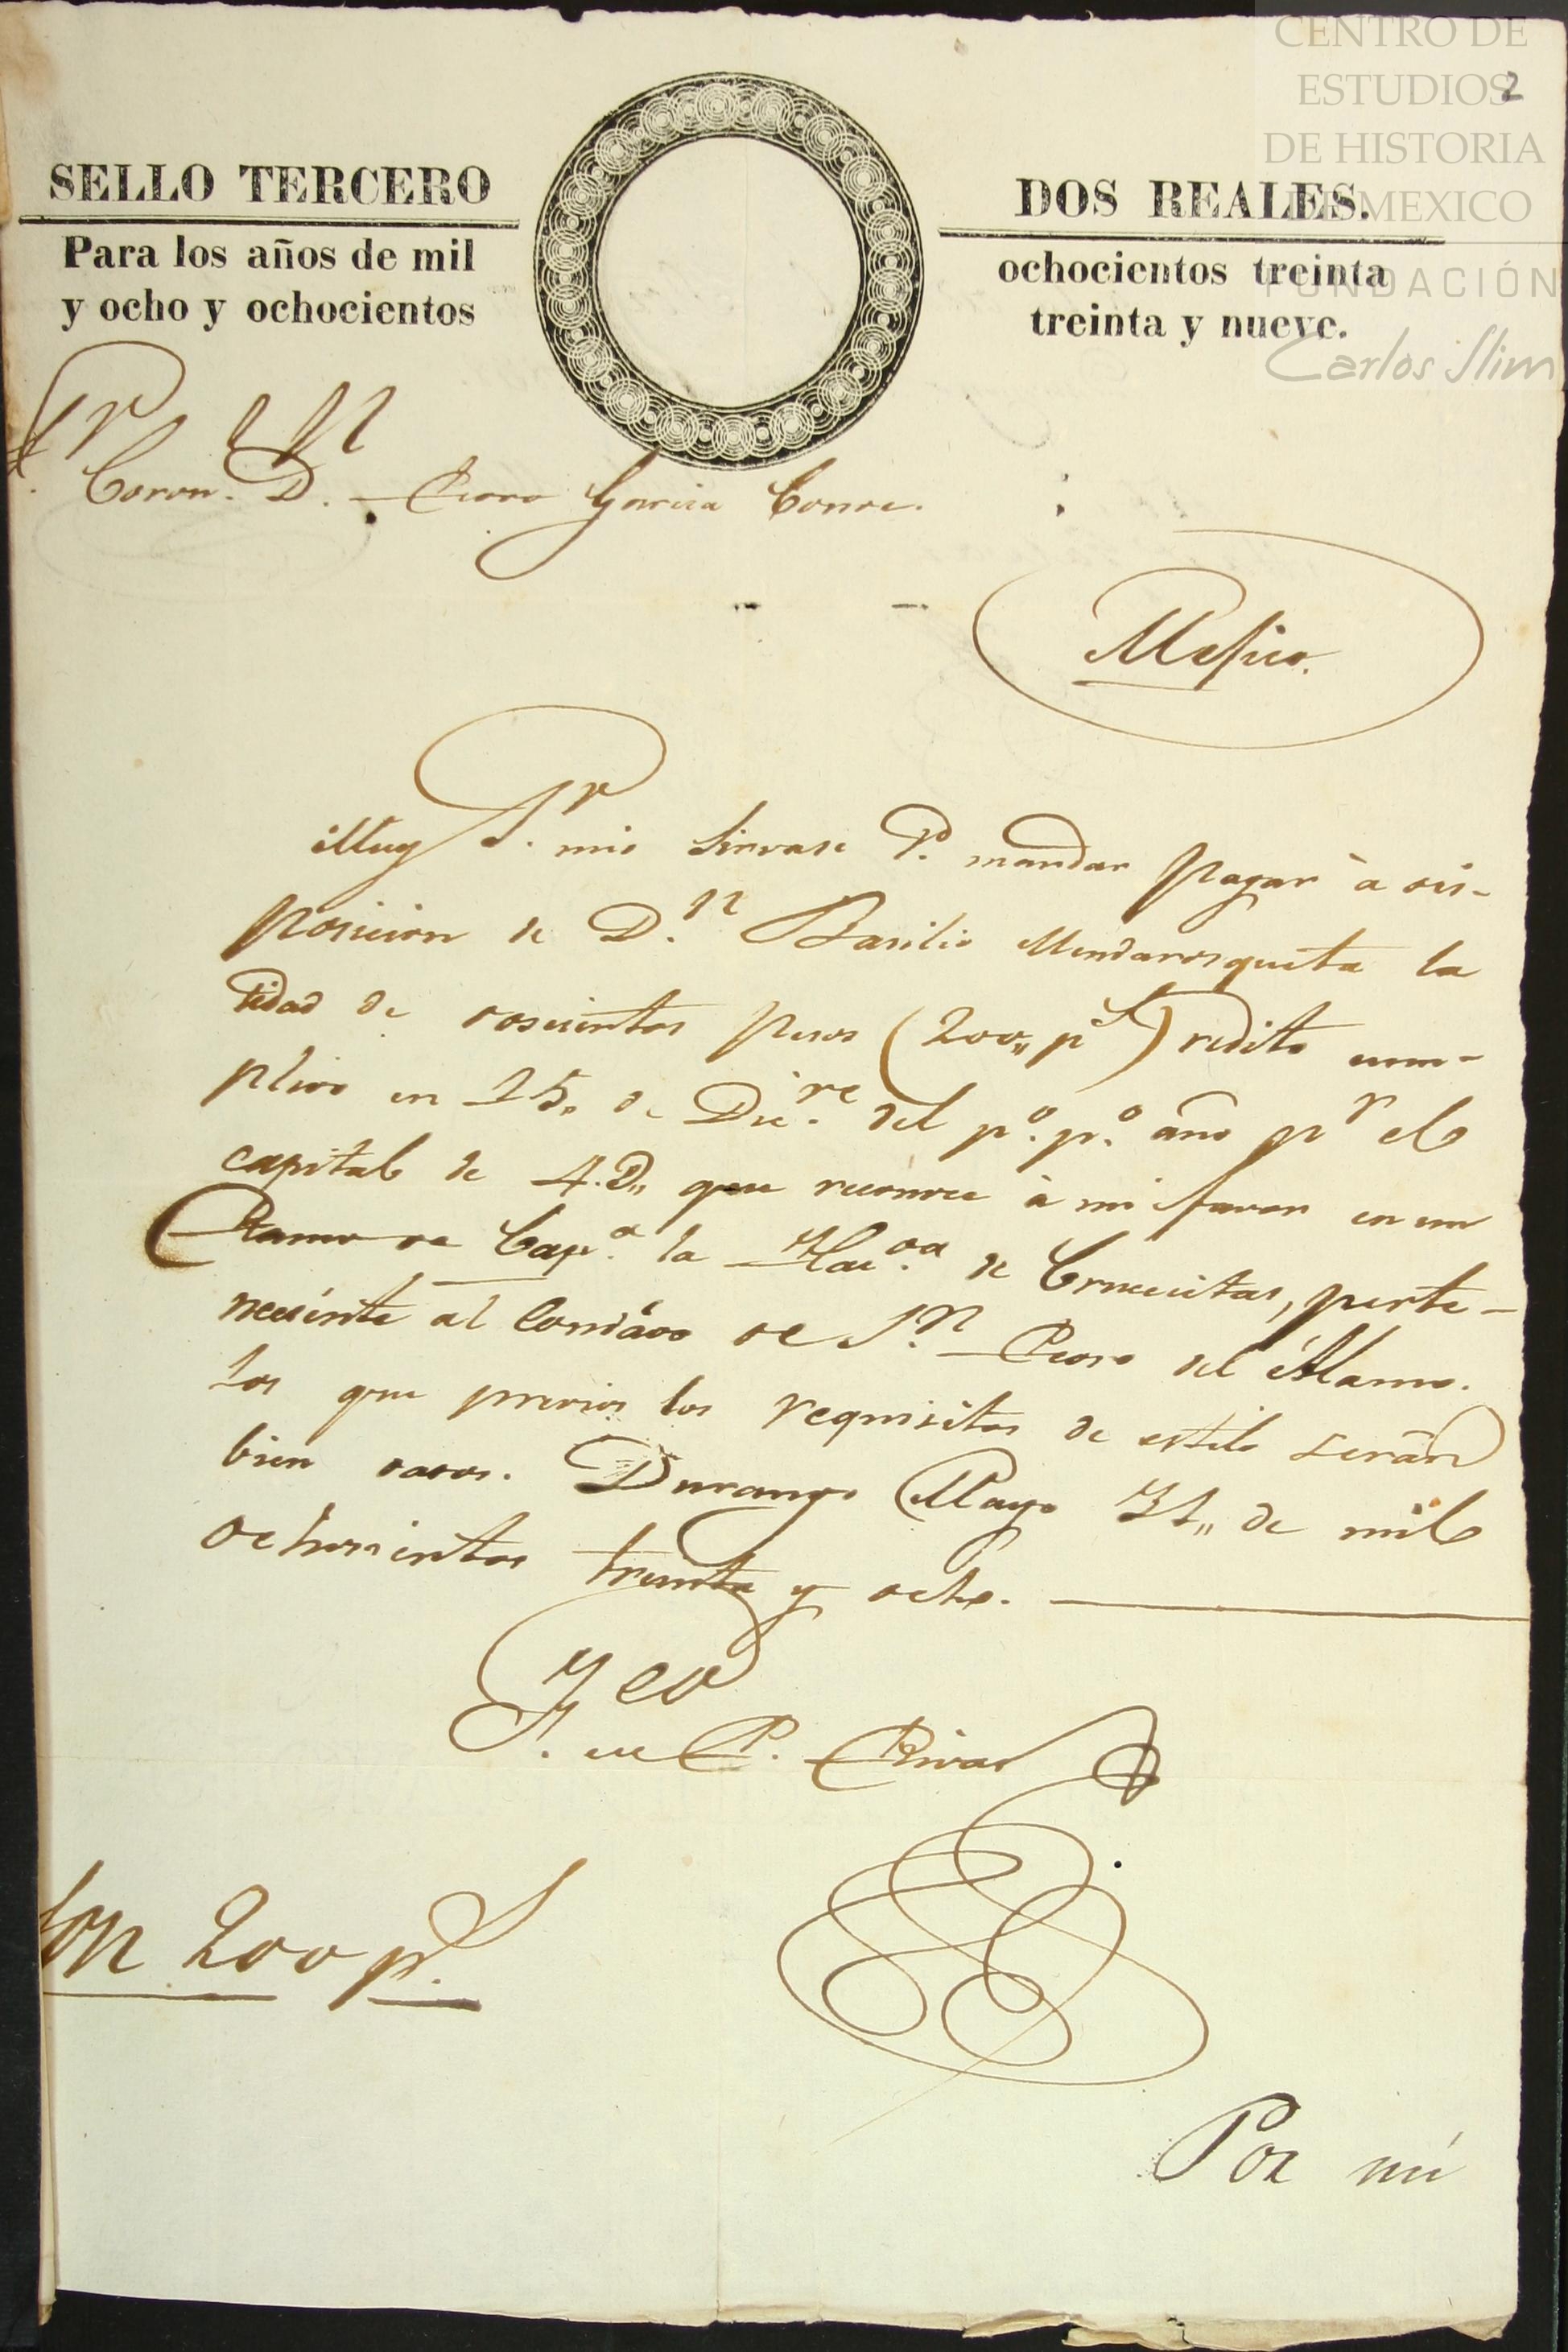 CENTRO DE
ESTUDIOS
2
DE HISTORIA
DE MEXICO
FUNDACIÓN
Carlos Slim
SELLO TERCERO
DOS REALES.
Para los años de mil
ochocientos treinta
y ocho y ochocientos
treinta y nueve.
Sr. Coronl. Dn. Pedro Garcia Conde.
Mejico.
Muy Sr. mio Sirvase V. mandar pagar à dis-
posicion de D.n Basilio Mendarosqueta la
tidad de doscientos pesos (200,, ps) redito cum-
plido en 25,, de Dic.re del p.o p.o año pr el
capital de 4.D,, que reconoce à mi favor en un
Ramo de Cap.a la Hac.da de Crucecitas, perte-
neciente al Condado de S.n Pedro del Alamo.
Los que previos los requisitos de estilo serán
bien dados. Durango Mayo 31,, de mil
ochocientos treinta y ocho.
P. Rivas
Son 200 ps.
Por mi